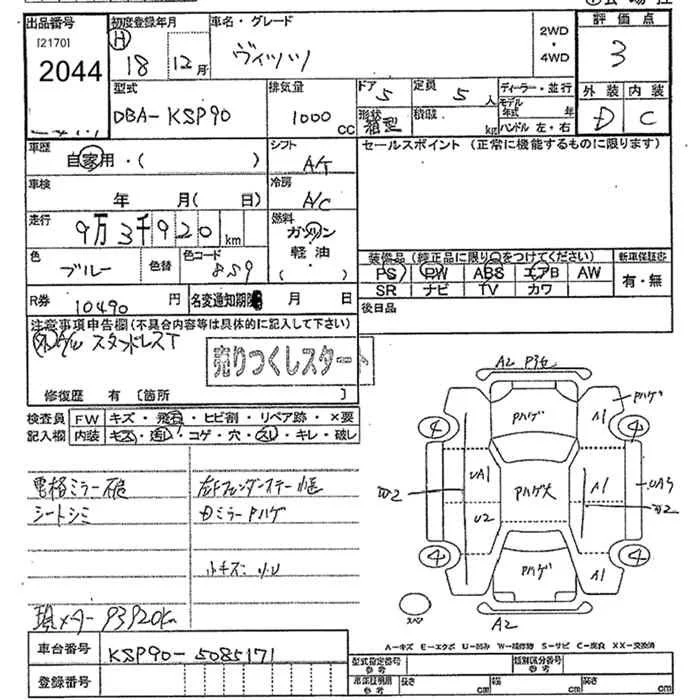 出品番号 初度登録年月 車名・グレード 2WD・4WD 評価点
[2170] 2044 H 18 12月 ヴィッツ 3
型式 排気量 ドア 5 定員 5人 ディーラー・並行 外装 内装
DBA-KSP90 1000 CC 形状 箱型 積載 kg モデル年式 年 ハンドル 左・右 D C
車歴 自家用・( ) シフト AT セールスポイント (正常に機能するものに限ります)
車検 年 月( 日) 冷房 A/C
走行 9万3千920 km 燃料 ガソリン 軽油 ( )
色 ブルー 色替 色コード 8S9
装備品(純正品に限り○をつけてください) 新車保証書
PS PW ABS エアB AW 有・無
SR ナビ TV カワ
R券 10490 円 名変通知期限 月 日 後日品
注意事項申告欄(不具合内容等は具体的に記入して下さい)
スタッドレスT
売りつくしスタート
修復歴 有 [箇所 ]
検査員記入欄 FW キズ・飛石・ヒビ割・リペア跡・×要
内装 キズ・汚レ・コゲ・穴・スレ・キレ・破レ
電格ミラー
シートシミ
左Fフェンダーステー
ミラーPハゲ
小キズ
現メーター 93920km
A2 P96
Pハゲ Pハゲ A1
4 4
UA1 Pハゲ大 A1
U2
4 Pハゲ A1 4
スペア A2
A-キズ E-エクボ U-凹み W-補修跡 S-サビ C-腐食 XX-交換済
車台番号 KSP90-5085171
登録番号
型式指定番号 参考 類別区分番号 参考
車庫証明用 参考 長さ cm 幅 cm 高さ cm